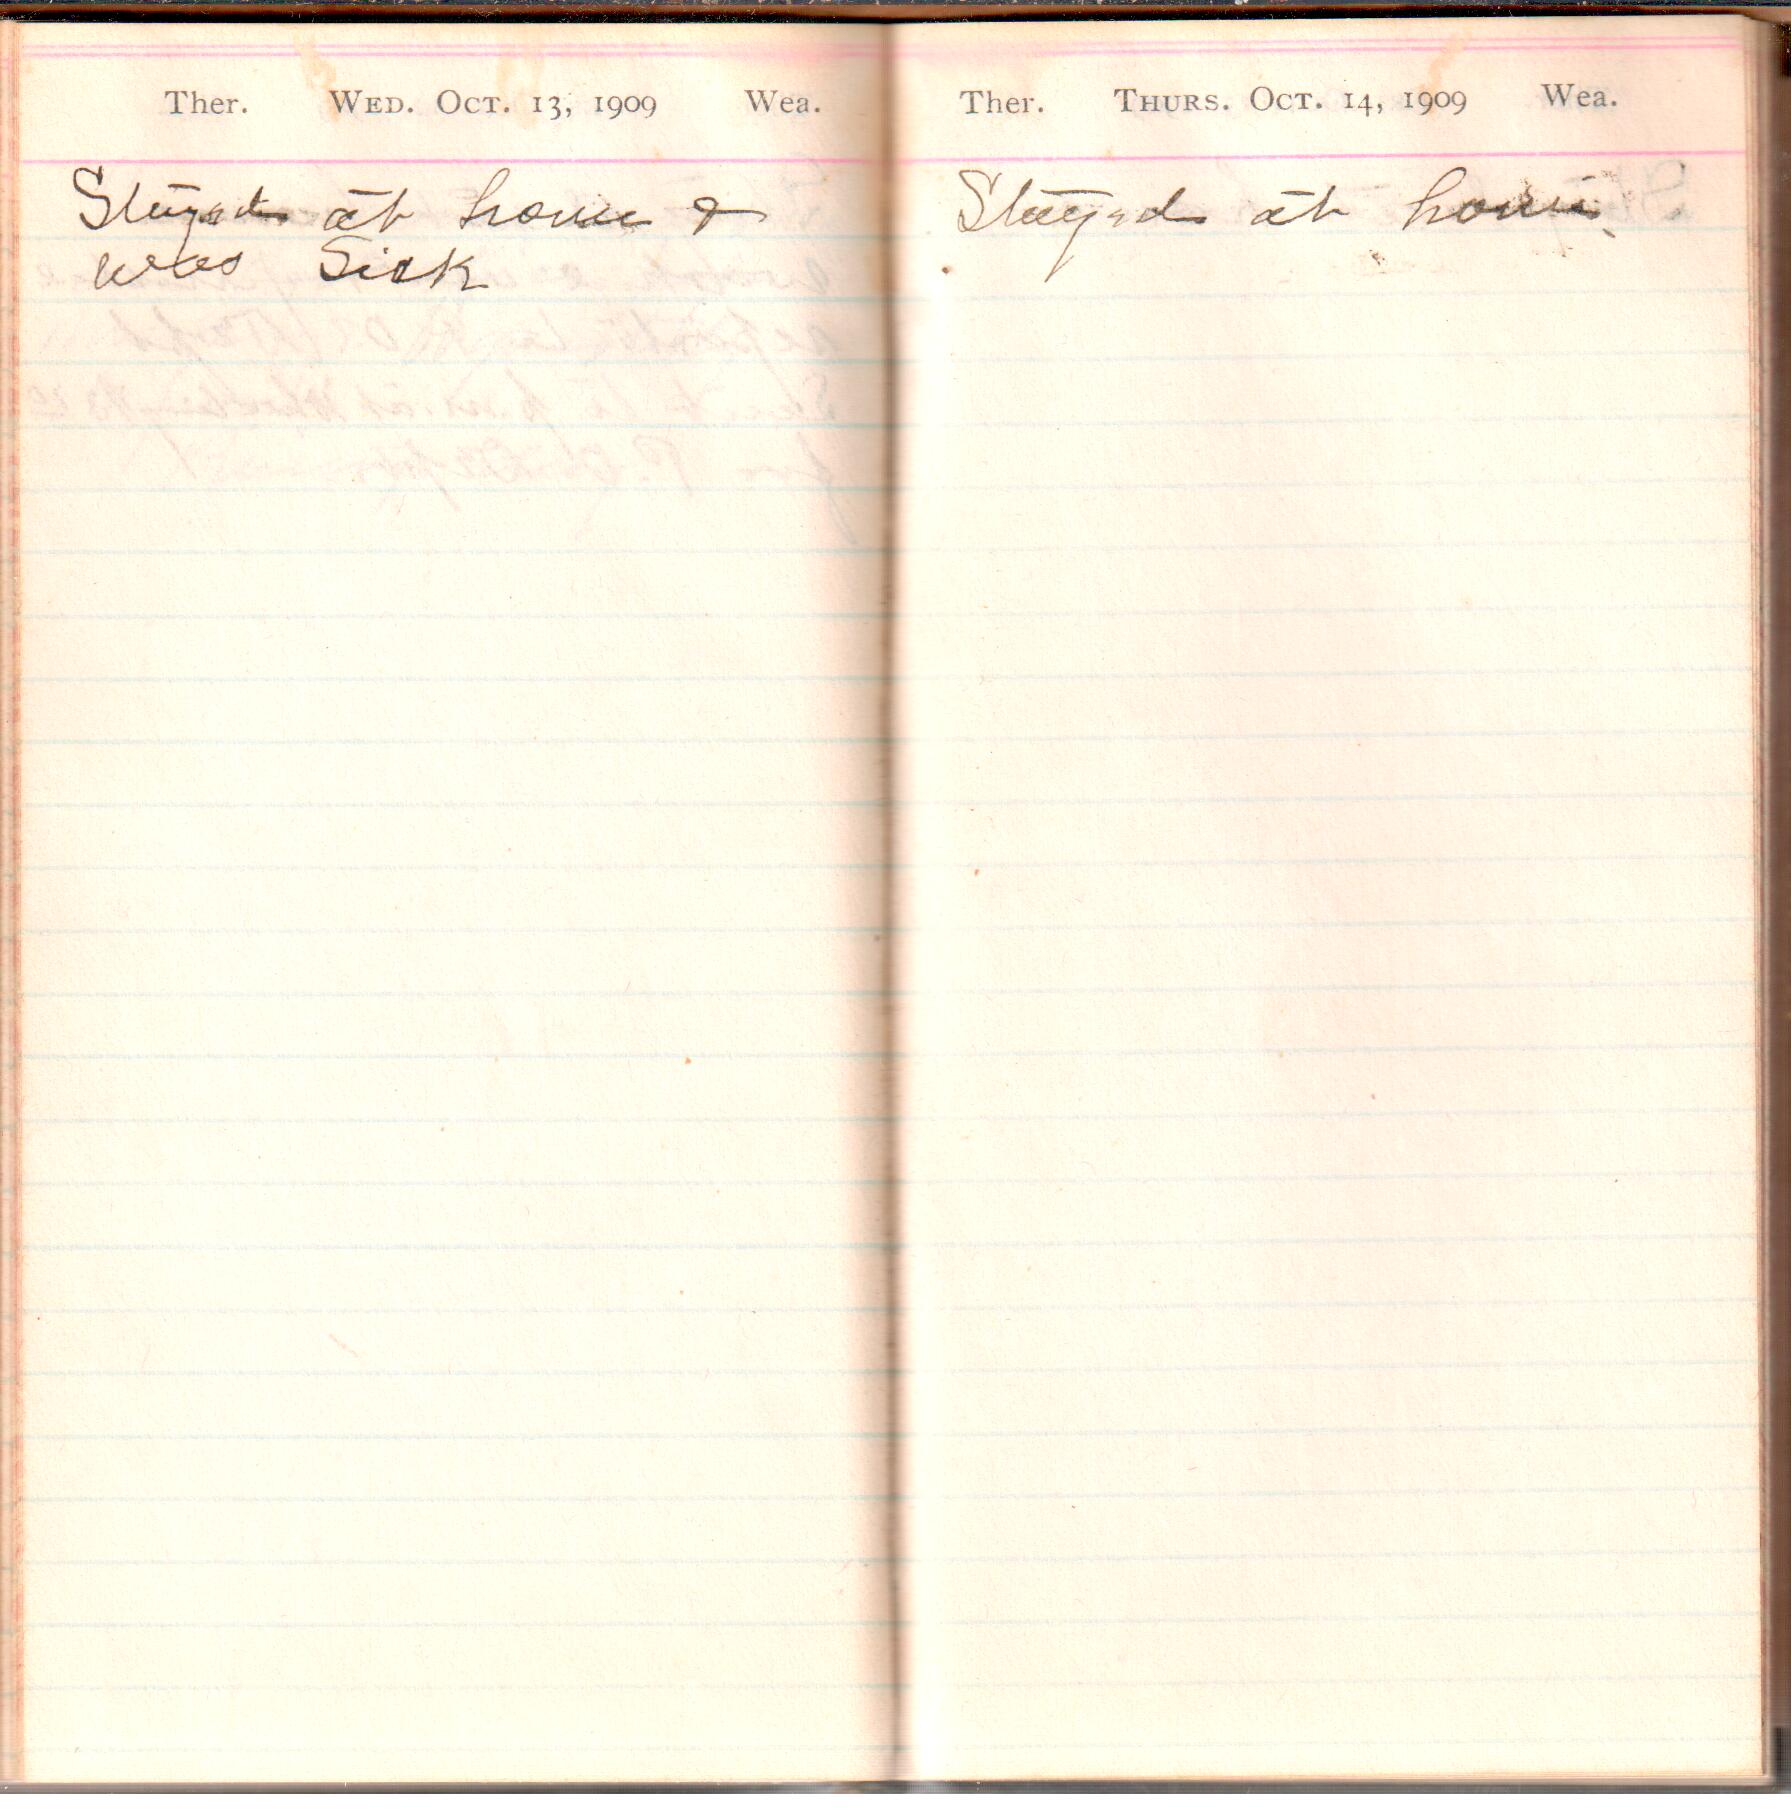 Ther. WED. OCT. 13, 1909 Wea.
Stayed at home &
was Sick
Ther. THURS. OCT. 14, 1909 Wea.
Stayed at home